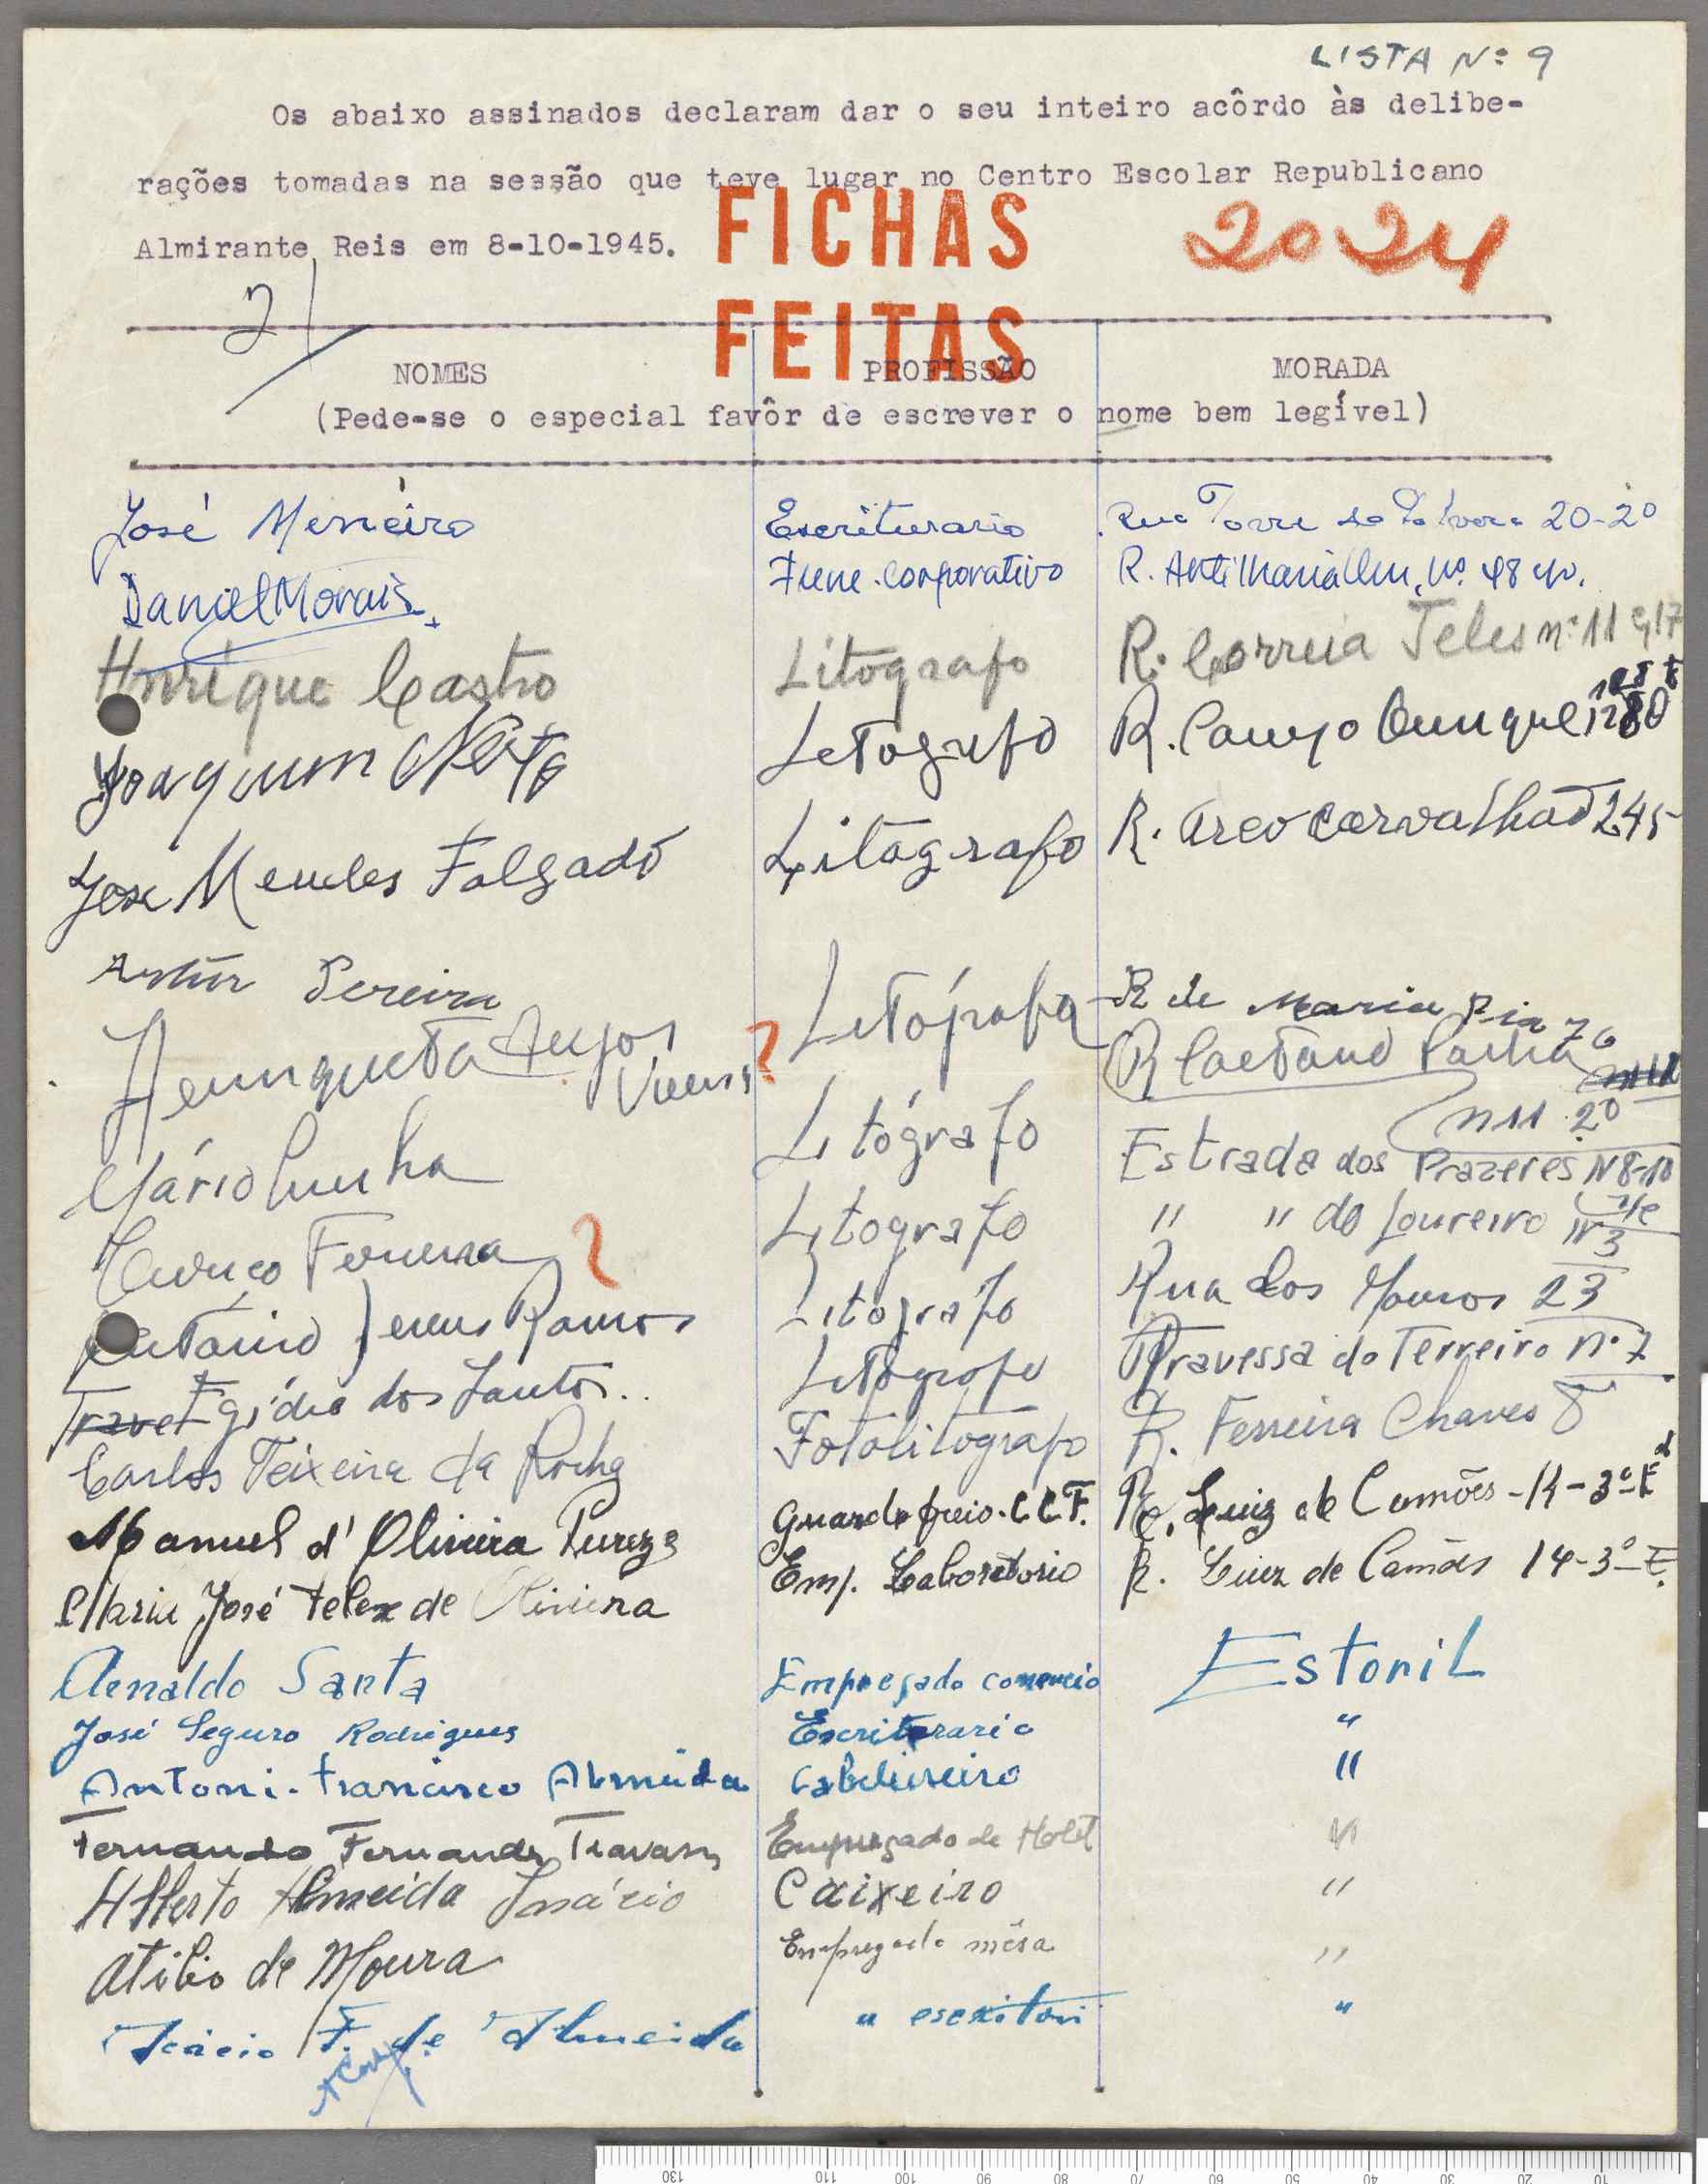 LISTA Nº 9
Os abaixo assinados declaram dar o seu inteiro acôrdo às delibe-
rações tomadas na sessão que teve lugar no Centro Escolar Republicano
Almirante Reis em 8-10-1945.
FICHAS
FEITAS
2024
21
NOMES PROFISSÃO MORADA
(Pede-se o especial favôr de escrever o nome bem legível)
José Escriturario Rua Torre da Polvora 20-2º
Daniel Morais Func. corporativo R. nº 48
Henrique Castro Litografo R. Correia Teles nº 11
Joaquim Neto Letografo R. Campo Ourique
José Mendes Falgado Litografo R. Arco Carvalhão 245
Artur Pereira R de Maria Pia 76
Letógrafa R Caetano
n 11 2º
Mário Cunha Litógrafo Estrada dos Prazeres N 8-10
Litografo " " do Loureiro Nº 3
António Ramos Litografo Rua dos 23
Egídio dos Santos.. Litografo Travessa do Terreiro nº 7
Carlos Teixeira da Rocha Fotolitografo R. Ferreira Chaves 8
Manuel d'Oliveira Pureza Guarda freio. C. C. F. R. Luiz de Camões - 14 - 3º E
Maria José Telex de Oliveira Emp. Laboratorio R. Luiz de Camões 14-3º-E.
Arnaldo Santa Empregado comercio Estoril
José Seguro Rodrigues Escriturario "
Antoni. Francisco Almeida Cabeleireiro "
Fernando Fernandes Travassos Empregado de Hotel "
Alberto Almeida Inácio Caixeiro "
Atilio de Moura Empregado mêsa "
F. de Almeida " escritori "